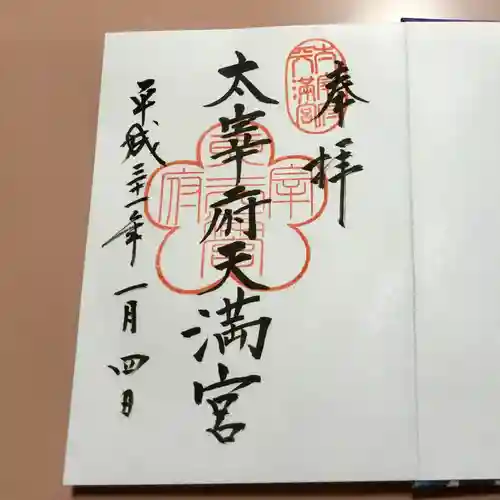 奉拝
太宰府天満宮
平成三十一年一月四日